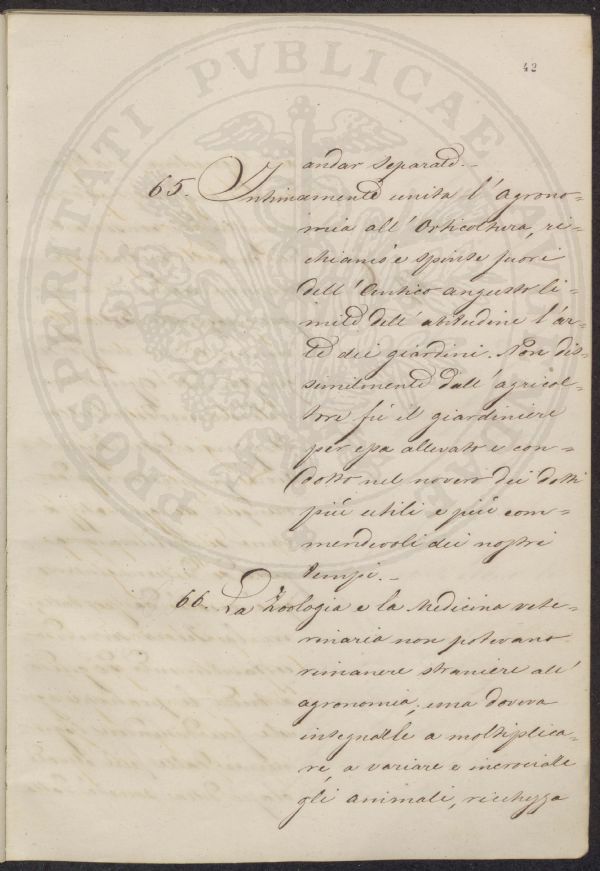 42
andar separate.-
65. Intimamente unita l'Agrono=
mia all'Orticoltura, ri=
chiamò e spinse fuori
dell'antico angusto li=
mite dell'abitudine l'ar=
te dei giardini. Non dis=
similmente dall'agricol=
tore fù il giardiniere
per essa allevato e con=
dotto nel novero dei dotti
più utili e più com=
mendevoli dei nostri
tempi.-
66. La Zoologia e la Medicina vete=
rinaria non potevano
rimanere straniere all'
agronomia, una doveva
insegnalle a moltiplica=
re, a variare e incrociare
gli animali, ricchezza
PROSPERITATI PVBLICAE AV